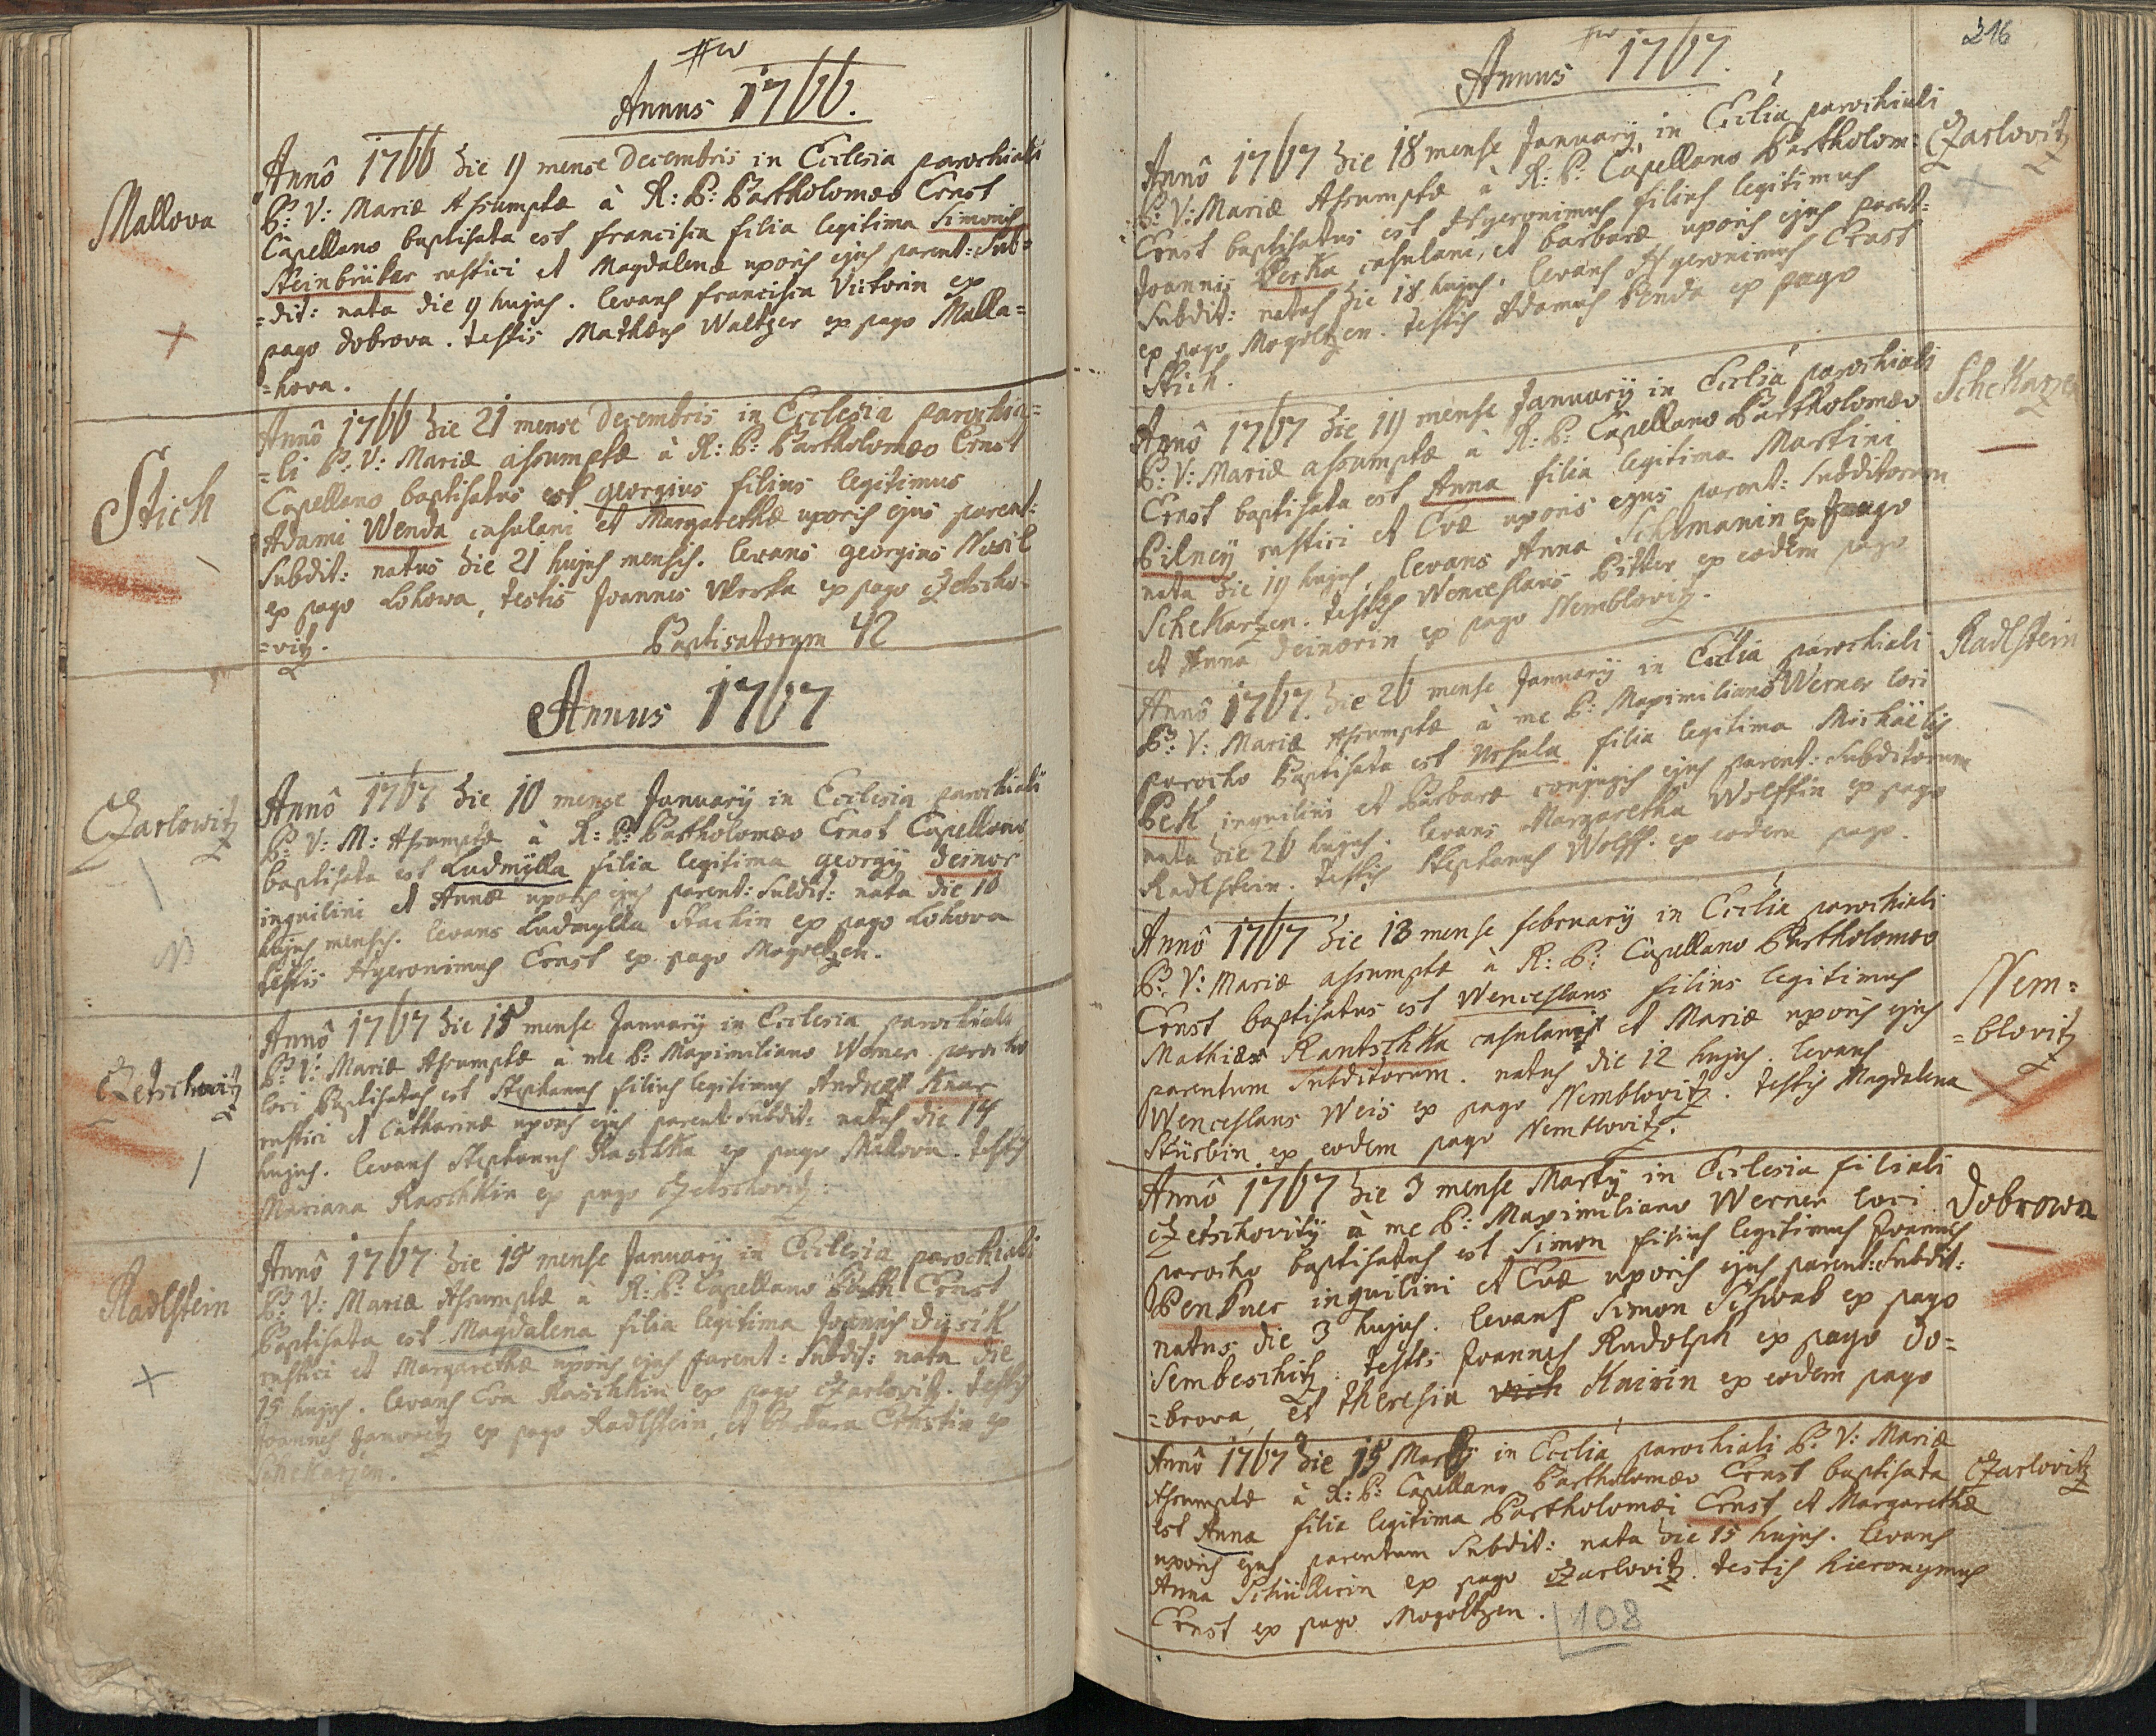 Annus 1766.
Mallova
Annô 1766 die 9 mense Decembris in Ecclesia parochiali
B: V: Mariæ Assumptæ à R: P: Bartholomæo Ernst
Capellano baptisata est francisca filia legitima Simonis
Steinbrüker rustici et Magdalenæ uxoris ejus parent: Sub=
=dit: nata die 9 hujus. levans francisca Victorin ex
pago dobrova. testis Mathæus Waltzer ex pago Malla=
=hova.
Stich
Annô 1766 die 21 mense Decembris in Ecclesia parochia=
=li B: V: Mariæ assumptæ à R: P: Bartholomæo Ernst
Capellano baptisatus est georgius filius legitimus
Adami Wenda casulani et Margarethæ uxoris ejus parent:
Subdit: natus die 21 hujus mensis. levans georgius
ex pago Lohowa, testis Joannes ex pago CZetscho=
=vitz.
Baptisatorum 42
Annus 1767
CZarlowitz
Annô 1767 die 10 mense Januarij in Ecclesia parochiali
B: V: M: Assumptæ à R: P: Bartholomæo Ernst Capellano
baptisata est Ludmÿlla filia legitima georgij deinor
inquilini et Annæ uxoris ejus parent: Subdit: nata die 10
hujus mensis. levans Ludmylla Stackin ex pago Lohova
testis Hyeronimus Ernst ex pago Mogoltzen.
CZetschowitz
Annô 1767 die 15 mense Januarij in Ecclesia parochiali
B: V: Mariæ Assumptæ à me P: Maximiliano Werner parocho
loci Baptisatus est Stephanus filius legitimus Andreæ Knar
rustici et Catharinæ uxoris ejus parent: Subdit: natus die 14
hujus. levans Stephanus Raschka ex pago Mallova. testis
Mariana Raschkin ex pago CZetschovitz.
Radlstein
Annô 1767 die 15 mense Januarij in Ecclesia parochiali
B: V: Mariæ Assumptæ à R: P: Capellano Barth: Ernst
Baptisata est Magdalena filia legitima Joannis
rustici et Margarethæ uxoris ejus parent: Subdit: nata die
15 hujus. levans Eva Raschkin ex pago CZarlovitz. testis
Joannes ex pago Radlstein, et Barbara Ernstin ex
Schekarzen.
216
Annus 1767.
CZarlovitz
Annô 1767 die 18 mense Januarij in Ecclia parochiali
B: V: Mariæ Assumptæ à R: P: Capellano Bartholom:
Ernst baptisatus est Hyeronimus filius legitimus
Joannis Berka casulani, et barbaræ uxoris ejus parent:
Subdit: natus die 18 hujus. levans Hyeronimus Ernst
ex pago Mogoltzen. testis Adamus Benda ex pago
Stich.
Schekarzen
Annô 1767 die 19 mense Januarij in Ecclia parochiali
B: V: Mariæ assumptæ à R: P: Capellano Bartholomæo
Ernst baptisata est Anna filia legitima Martini
Pilneÿ rustici et Evæ uxoris ejus parent: Subditorum
nata die 19 hujus. levans Anna ex pago
Schekarzen. testis Wenceslaus Bitter ex eodem pago
et Anna deinorin ex pago Nemblovitz.
Radlstein
Annô 1767. die 26 mense Januarij in Ecclia parochiali
B: V: Mariæ Assumptæ à me P: Maximiliano Werner loci
parocho Baptisata est Ursula filia legitima Michäelis
Bek inquilini et Barbaræ conjugis ejus parent: Subditorum
nata die 26 hujus. levans Margaretha Wolffin ex pago
Radlstein. testis Stephanus Wolff. ex eodem pago.
Nem=
=blovitz
Annô 1767 die 13 mense februarij in Ecclia parochiali
B: V: Mariæ assumptæ à R: P: Capellano Bartholomæo
Ernst baptisatus est Wenceslaus filius legitimus
Mathiæ Rantschka casulani et Mariæ uxoris ejus
parentum Subditorum. natus die 12 hujus. levans
Wenceslaus Weis ex pago Nemblovitz. testis Magdalena
ex eodem pago Nemblovitz.
Dobrowa
Annô 1767 die 3 mense Martij in Ecclesia filiali
CZetschovitij à me P: Maximiliano Werner loci
parocho baptisatus est Simon filius legitimus Joannis
inquilini et Evæ uxoris ejus parent: Subdit:
natus die 3 hujus. levans Simon Schwab ex pago
Sembeschitz. testis Joannes Rudolph ex pago do=
=brova, et theresia Knirin ex eodem pago
CZarlovitz
Annô 1767 die 15 Martij in Ecclia parochiali B: V: Mariæ
Assumptæ à R: P: Capellano Bartholomæo Ernst baptisata
est Anna filia legitima Bartholomæi Ernst et Margarethæ
uxoris ejus parentum Subdit: nata die 15 hujus. levans
Anna Schüllerin ex pago CZarlovitz. testis hieronymus
Ernst ex pago Mogoltzen.
108